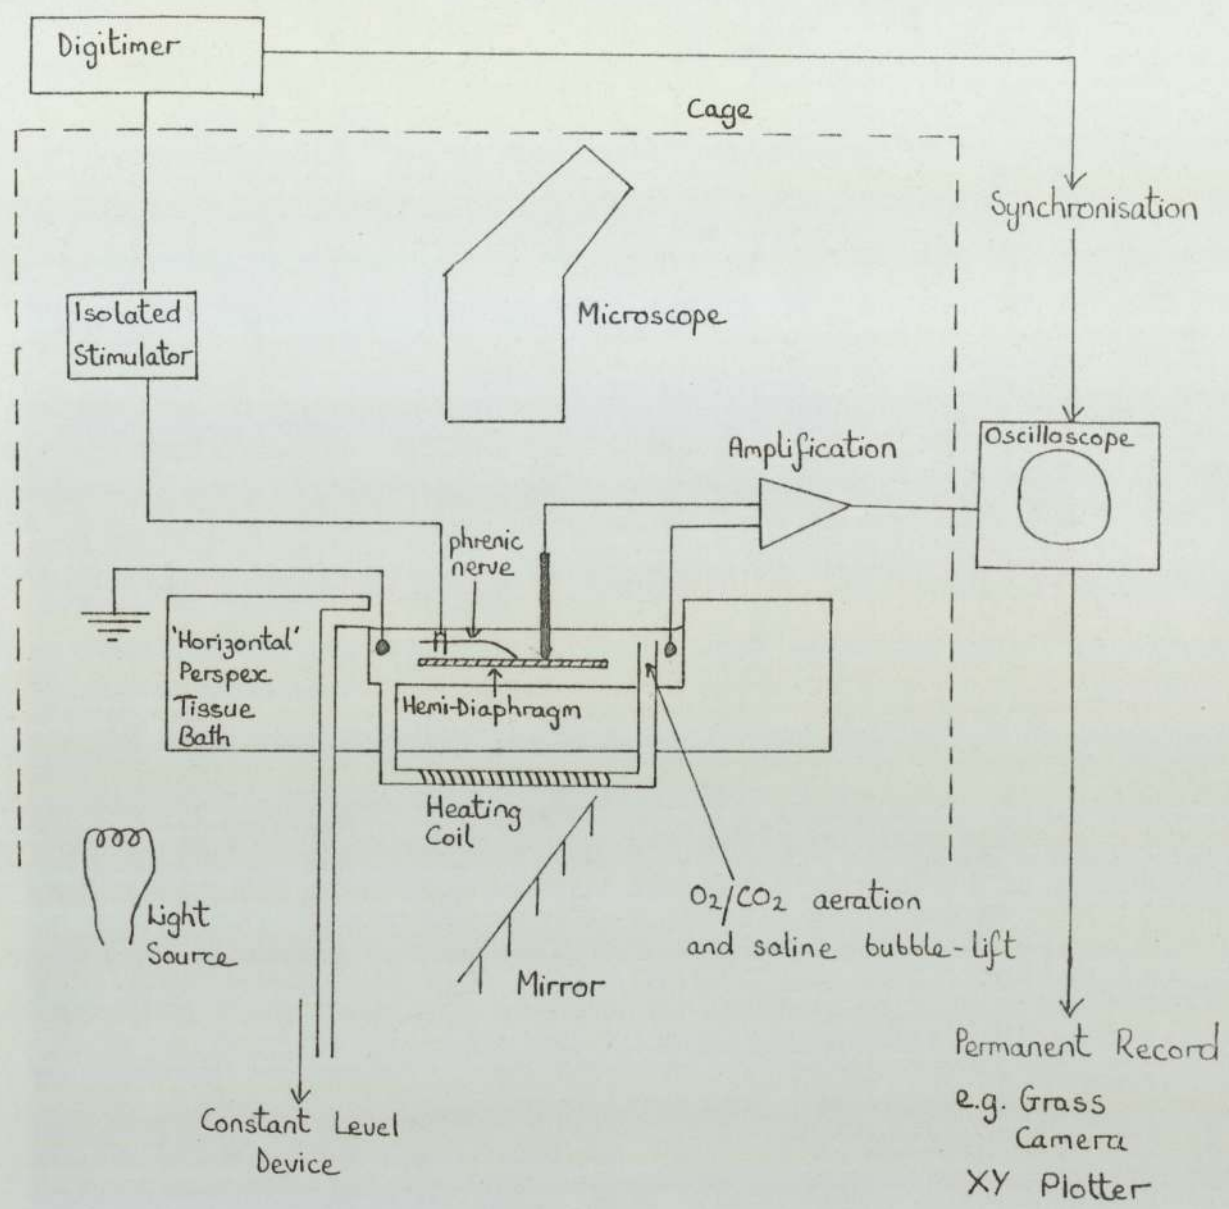 Digitimer
Cage
Synchronisation
Isolated
Stimulator
Microscope
Amplification
Oscilloscope
phrenic
nerve
'Horizontal'
Perspex
Tissue
Bath
Hemi-Diaphragm
Heating
Coil
Light
Source
O₂/CO₂ aeration
and saline bubble-lift
Mirror
Constant Level
Device
Permanent Record
e.g. Grass
Camera
XY Plotter